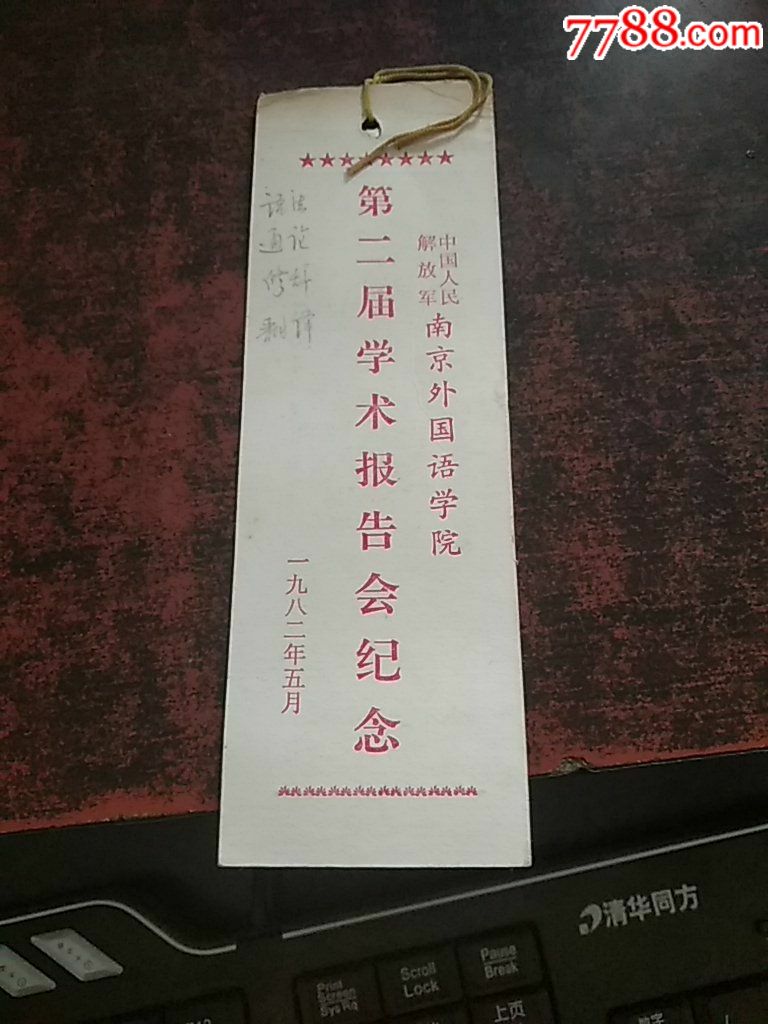 7788.com
★★★★★★★★
中国人民
解放军
南京外国语学院
第二届学术报告会纪念
一九八二年五月
语法
通论
修辞
翻译
清华同方
Print
Screen
Sys Rq
Scroll
Lock
Pause
Break
上页
数字